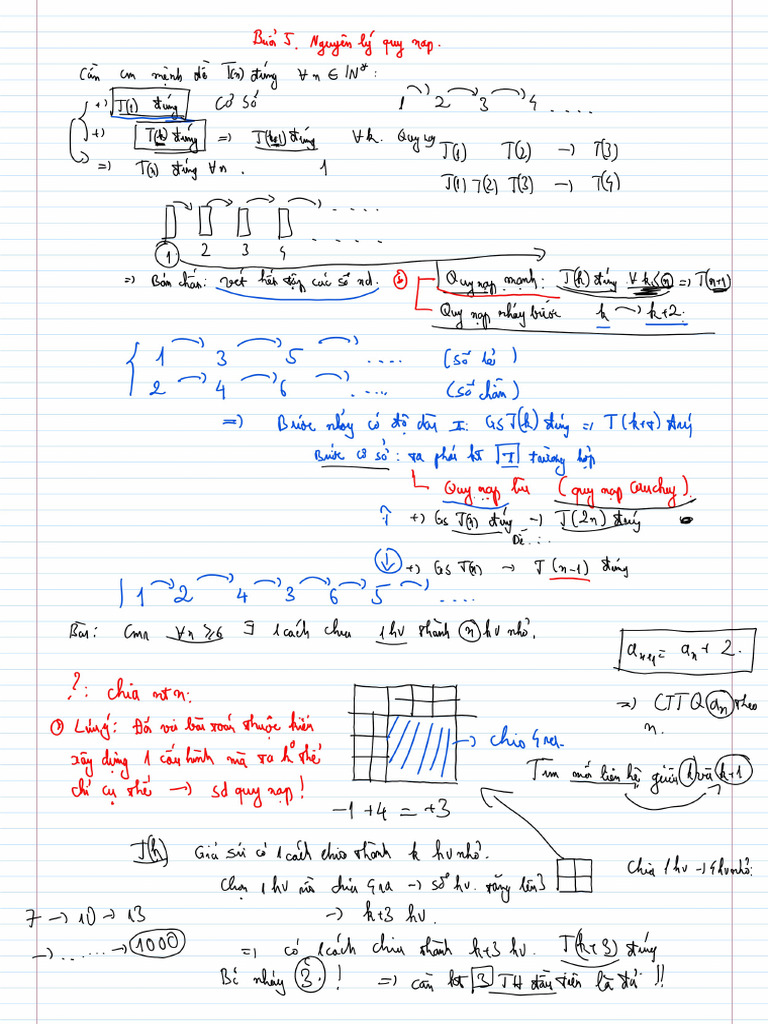 Buổi 5. Nguyên lý quy nạp.
Cần cm mệnh đề T(n) đúng ∀n ∈ ℕ*:
+) T(1) đúng cơ sở
1 2 3 4 ....
+) T(k) đúng => T(k+1) đúng ∀k. Quy nạp
T(1) T(2) → T(3)
=> T(n) đúng ∀n. 1
T(1) T(2) T(3) → T(4)
....
1 2 3 4 ....
=> Bản chất: vét hết tập các số nd.
Quy nạp mạnh: T(k) đúng ∀k≤n => T(n+1)
Quy nạp nhảy bước k → k+2.
1 3 5 .... (số lẻ)
2 4 6 .... (số chẵn)
=> Bước nhảy có độ dài r: GS T(k) đúng => T(k+r) đúng
Bước cơ sở: ta phải kt r trường hợp
Quy nạp lùi (quy nạp Cauchy).
↑ +) GS T(n) đúng → T(2n) đúng
Dễ...
↓ +) GS T(n) → T(n-1) đúng
1 2 4 3 6 5 ....
Bài: Cmr ∀n ≥ 6 ∃ 1 cách chia 1 hv thành n hv nhỏ.
a_{n+1} = a_n + 2.
=> CTTQ a_n theo n.
?: chia ntn:
Lưu ý: Đối với bài toán thuộc kiểu
xây dựng 1 cấu hình mà ta k thể
chỉ cụ thể → sd quy nạp!
→ chia 4 ra.
Tìm mối liên hệ giữa k và k+1
-1+4 = +3
T(k) Giả sử có 1 cách chia thành k hv nhỏ.
Chọn 1 hv mà chia 4 ra → số hv tăng lên 3
Chia 1 hv → 4 hv nhỏ:
7 → 10 → 13 → k+3 hv.
→ ...... → 1000
=> có 1 cách chia thành k+3 hv. T(k+3) đúng
Bc nhảy 3. ! => cần kt 3 TH đầu tiên là đủ !!